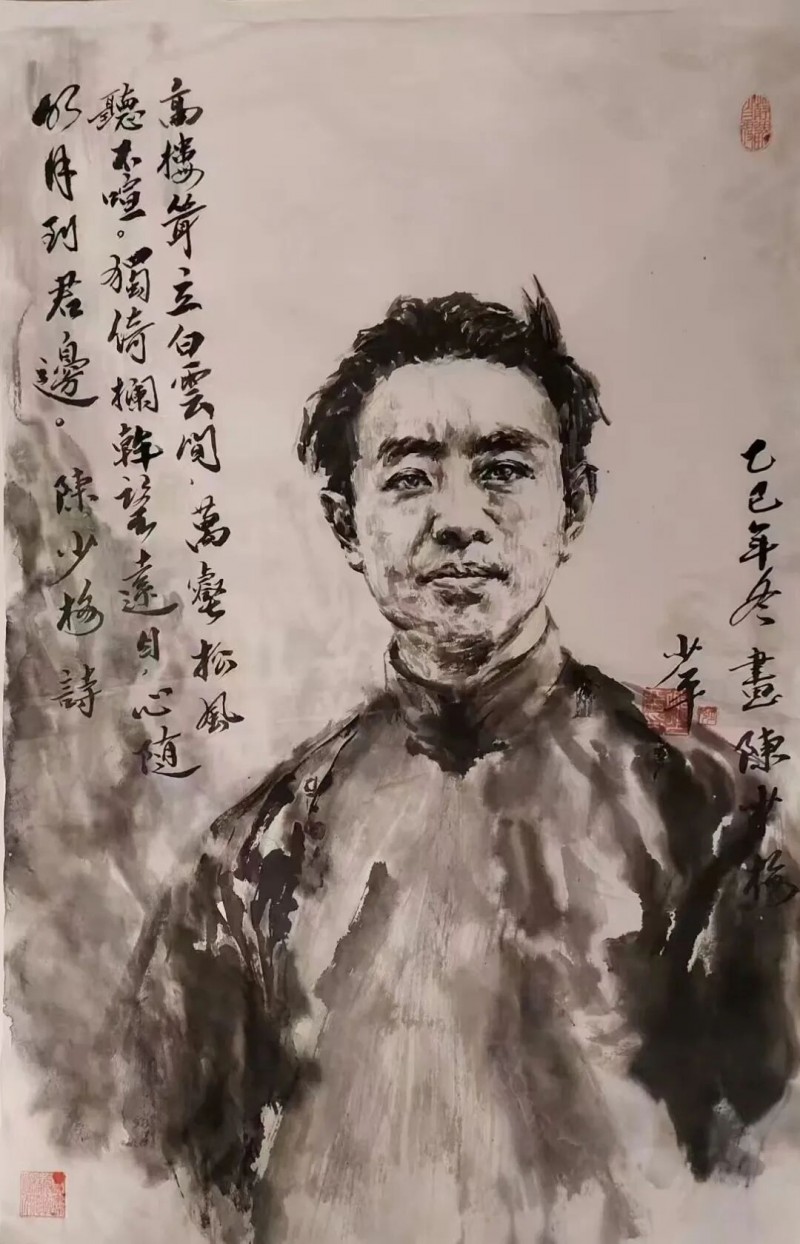 高樓聳立白雲間，萬壑松風
聽不喧。獨倚欄幹望遠目，心隨
明月到君邊。陳少梅詩
乙巳年冬畫陳少梅
少平